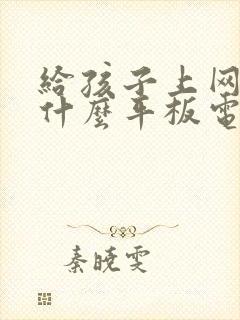 給孩子上网
什麼平板電
秦曉雯